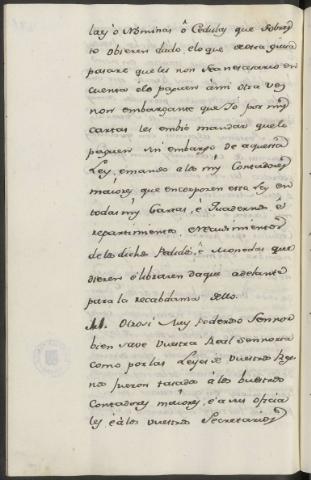 las, ò Nóminas ô Cedulas que sobre
ò obieren dado, elo que de otra guisa
pasare que les non sea rescevido en
cuenta élo paguen à mi otra vez
non embargante que Yo por mis
cartas les embie mandar que lo
paguen sin embargo de aquesta
Ley, e mando à los mis Contadores
maiòres, que encorporen esta Ley en
todas mis Cartas, è Quadernos è
repartimientos, è recudimientos
de los dichos Pedidos, è Monedas que
dieren è libraren daqui adelante
para la recabdanza dello.
Otrosi Muy poderoso Sennor
bien save Vuestra Real Sennoria
como por las Leyes de Vuestro Reg
no fueron tasados à los buestros
Contadores maiòres, è à sus oficia
les è à los Vuestros Secretarios